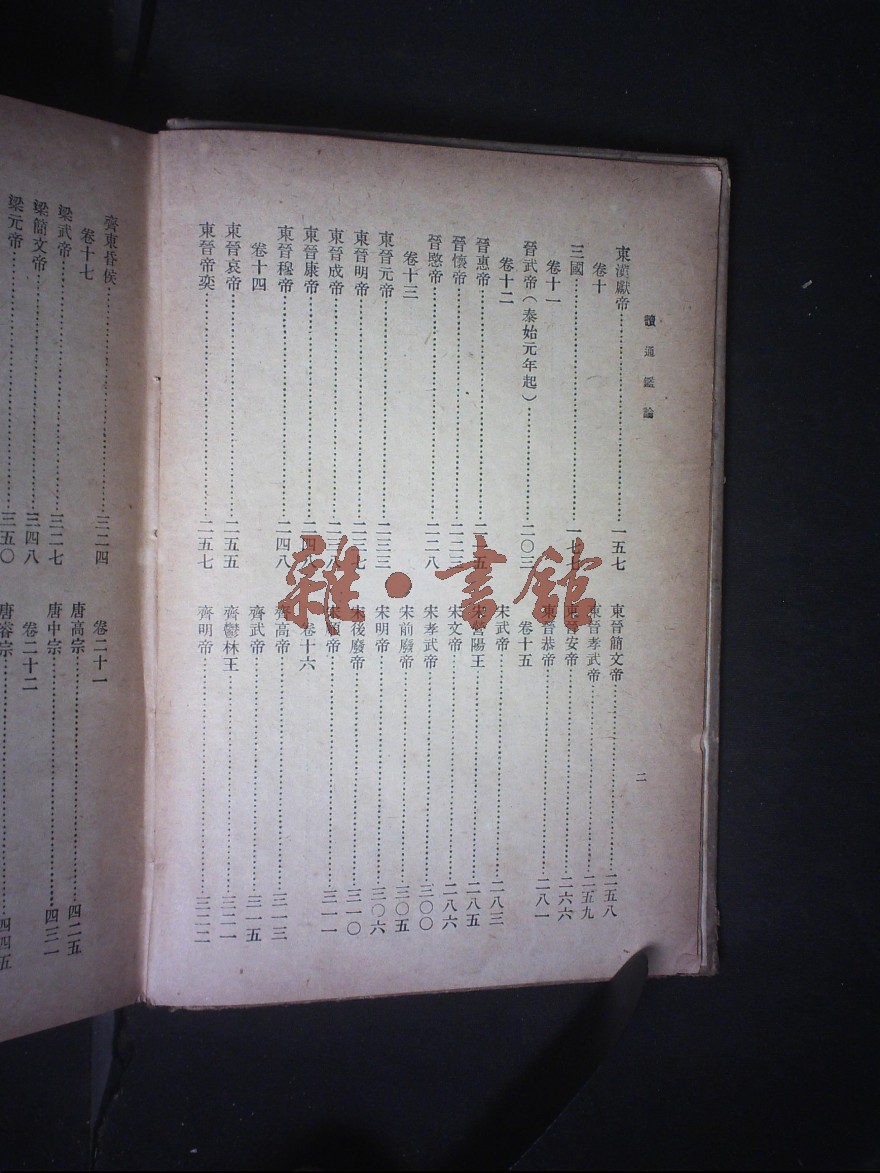 讀通鑑論
二
東漢獻帝……一五七
卷十
三國……一七七
卷十一
晉武帝（泰始元年起）……二〇三
卷十二
晉惠帝……二一五
晉懷帝……二二三
晉愍帝……二二八
卷十三
東晉元帝……二三三
東晉明帝……二三七
東晉成帝……二三八
東晉康帝……二四八
東晉穆帝……二四八
卷十四
東晉哀帝……二五五
東晉帝奕……二五七
東晉簡文帝……二五八
東晉孝武帝……二五九
東晉安帝……二六六
東晉恭帝……二八一
卷十五
宋武帝……二八三
宋營陽王……二八五
宋文帝……二八六
宋孝武帝……三〇〇
宋前廢帝……三〇五
宋明帝……三〇六
宋後廢帝……三一〇
宋順帝……三一一
卷十六
齊高帝……三一三
齊武帝……三一五
齊鬱林王……三二一
齊明帝……三二二
齊東昏侯……三二四
卷十七
梁武帝……三二七
梁簡文帝……三四八
梁元帝……三五〇
卷二十一
唐高宗……四二五
唐中宗……四三一
卷二十二
唐睿宗……四四五
雜·書館